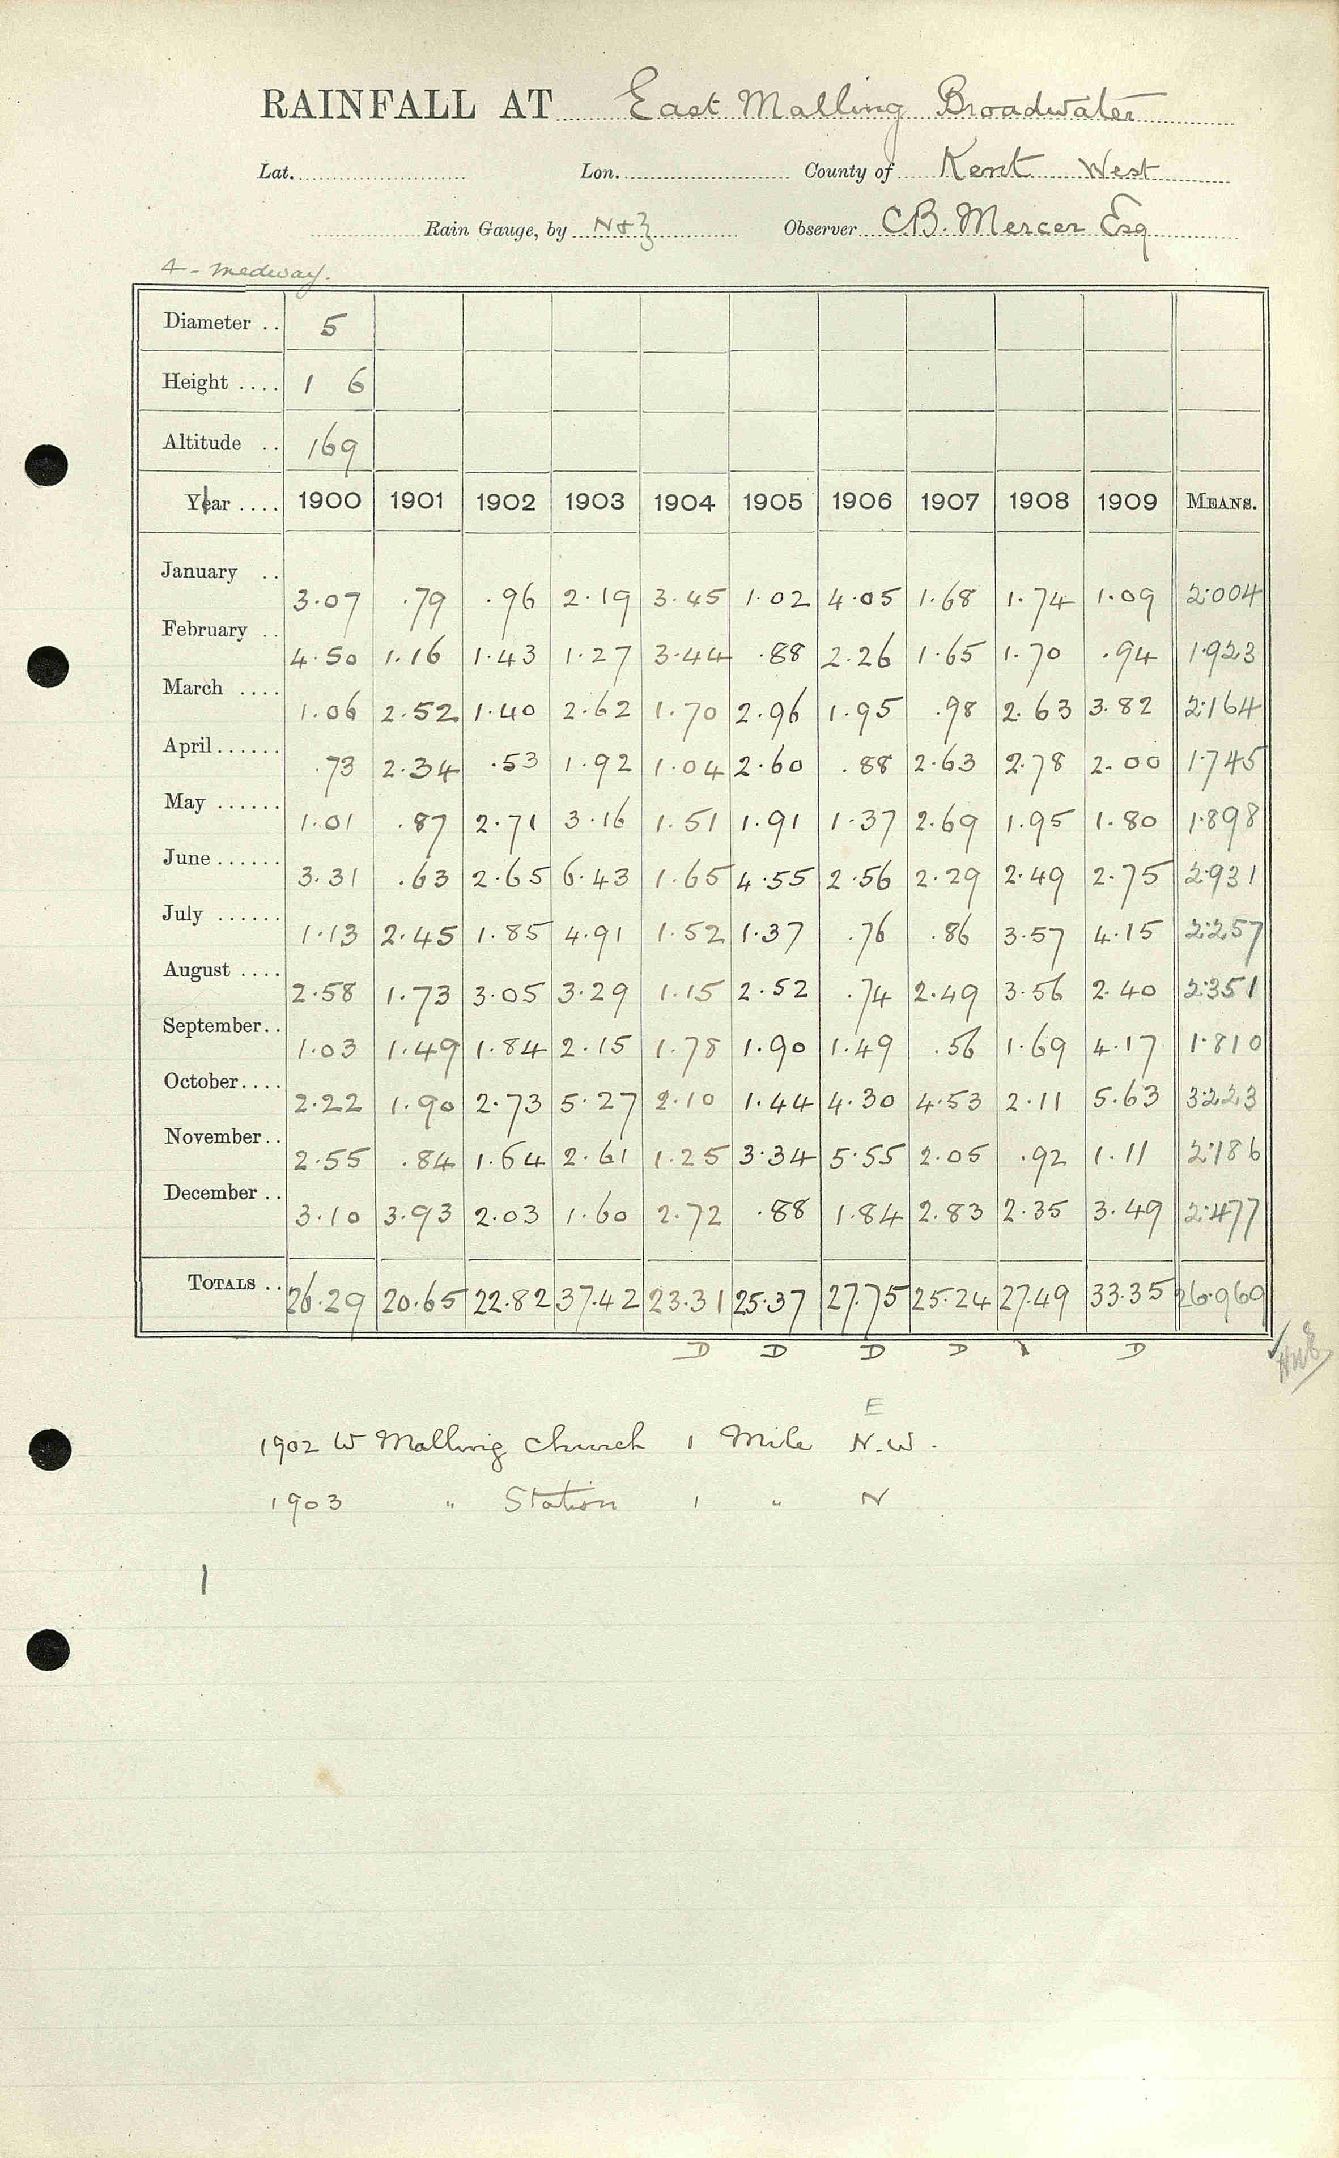 RAINFALL AT East Malling Broadwater
Lat. Lon. County of Kent West
Rain Gauge, by N & Z Observer C.B. Mercer Esq
4 - Medway.
Diameter .. 5
Height .... 1 6
Altitude .. 169
Year .... 1900 1901 1902 1903 1904 1905 1906 1907 1908 1909 MEANS.
January .. 3.07 .79 .96 2.19 3.45 1.02 4.05 1.68 1.74 1.09 2.004
February .. 4.50 1.16 1.43 1.27 3.44 .88 2.26 1.65 1.70 .94 1.923
March .... 1.06 2.52 1.40 2.62 1.70 2.96 1.95 .98 2.63 3.82 2.164
April ...... .73 2.34 .53 1.92 1.04 2.60 .88 2.63 2.78 2.00 1.745
May ...... 1.01 .87 2.71 3.16 1.51 1.91 1.37 2.69 1.95 1.80 1.898
June ...... 3.31 .63 2.65 6.43 1.65 4.55 2.56 2.29 2.49 2.75 2.931
July ...... 1.13 2.45 1.85 4.91 1.52 1.37 .76 .86 3.57 4.15 2.257
August .... 2.58 1.73 3.05 3.29 1.15 2.52 .74 2.49 3.56 2.40 2.351
September.. 1.03 1.49 1.84 2.15 1.78 1.90 1.49 .56 1.69 4.17 1.810
October.... 2.22 1.90 2.73 5.27 2.10 1.44 4.30 4.53 2.11 5.63 3.223
November.. 2.55 .84 1.64 2.61 1.25 3.34 5.55 2.05 .92 1.11 2.186
December .. 3.10 3.93 2.03 1.60 2.72 .88 1.84 2.83 2.35 3.49 2.477
TOTALS .. 26.29 20.65 22.82 37.42 23.31 25.37 27.75 25.24 27.49 33.35 26.969
D D D D D
E
1902 W Malling Church 1 Mile N.W.
1903 " Station 1 " N